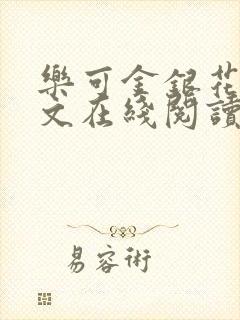 樂可金銀花
文在綫閱讀
易容術